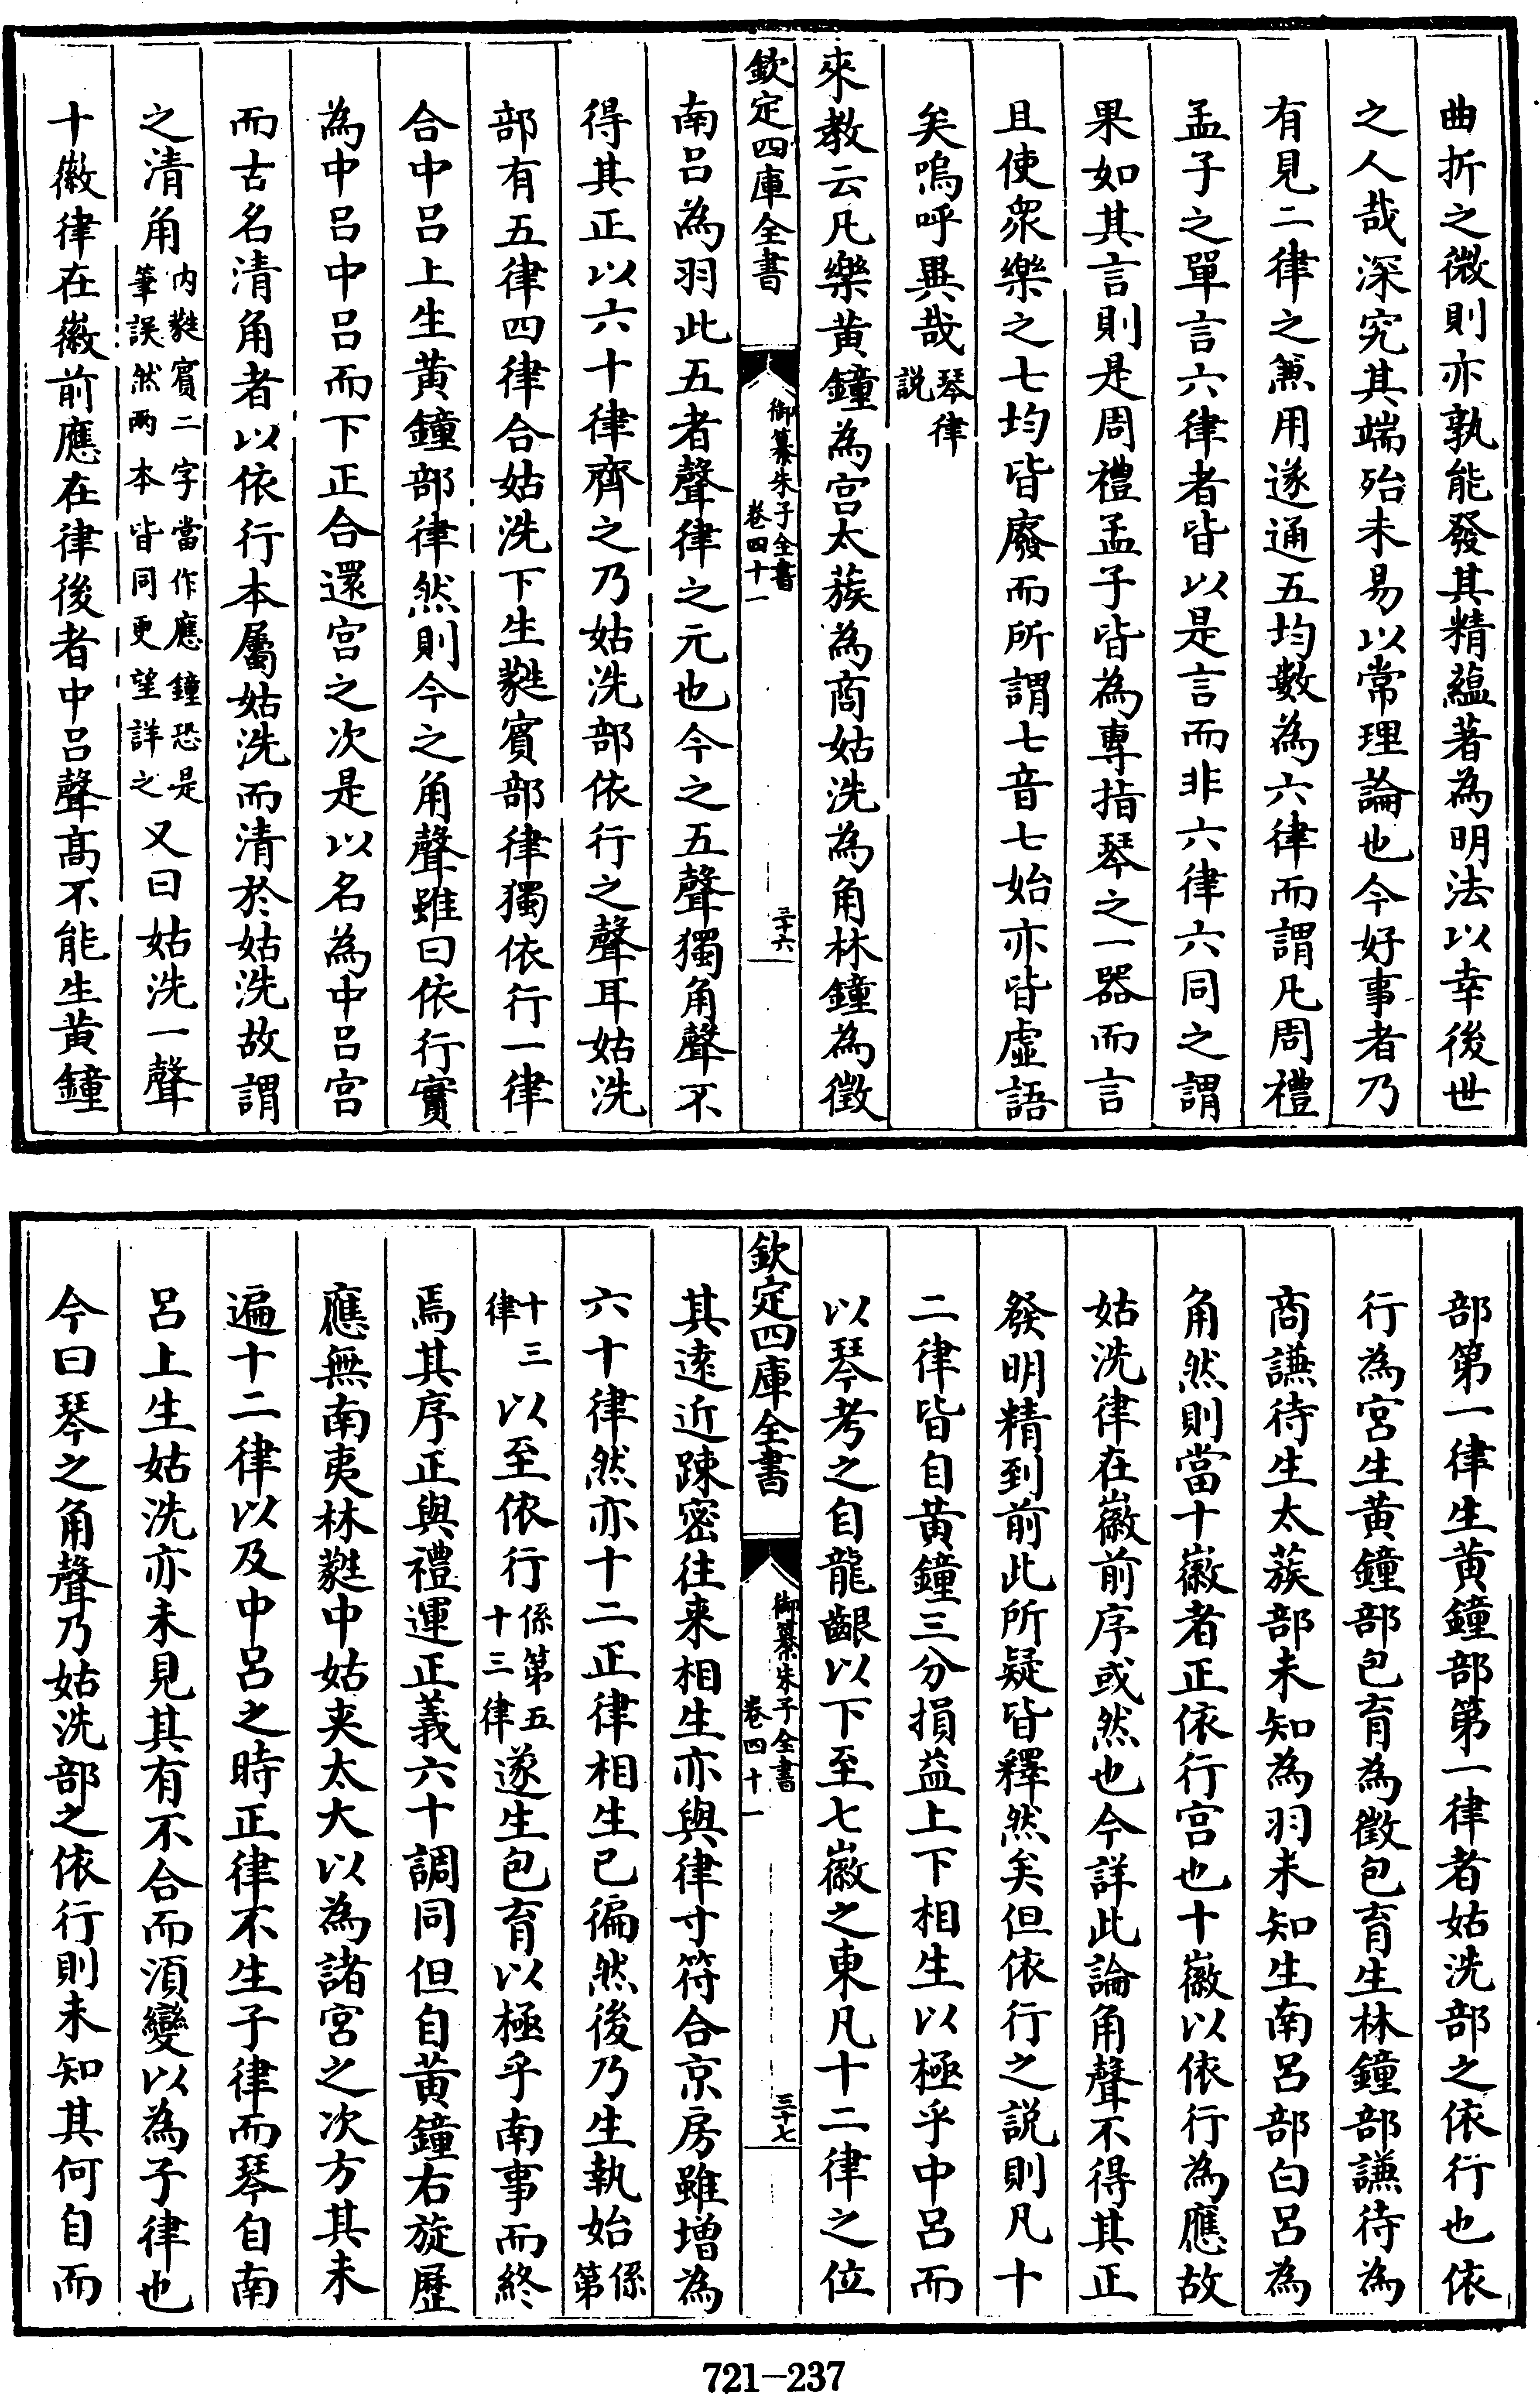 曲折之微則亦孰能發其精蘊著為明法以幸後世
之人哉深究其端殆未易以常理論也今好事者乃
有見二律之兼用遂通五均數為六律而謂凡周禮
孟子之單言六律者皆以是言而非六律六同之謂
果如其言則是周禮孟子皆為專指琴之一器而言
且使衆樂之七均皆廢而所謂七音七始亦皆虚語
矣嗚呼異哉琴律說
來教云凡樂黄鐘為宫太蔟為商姑洗為角林鐘為徵
欽定四庫全書
御纂朱子全書
卷四十一
三十六
南吕為羽此五者聲律之元也今之五聲獨角聲不
得其正以六十律齊之乃姑洗部依行之聲耳姑洗
部有五律四律合姑洗下生蕤賓部律獨依行一律
合中吕上生黄鐘部律然則今之角聲雖曰依行實
為中吕中吕而下正合還宫之次是以名為中吕宫
而古名清角者以依行本屬姑洗而清於姑洗故謂
之清角内蕤賓二字當作應鐘恐是筆誤然兩本皆同更望詳之又曰姑洗一聲
十徽律在徽前應在律後者中吕聲高不能生黄鐘
部第一律生黄鐘部第一律者姑洗部之依行也依
行為宫生黄鐘部包育為徵包育生林鐘部謙待為
商謙待生太蔟部未知為羽未知生南吕部白吕為
角然則當十徽者正依行宫也十徽以依行為應故
姑洗律在徽前序或然也今詳此論角聲不得其正
發明精到前此所疑皆釋然矣但依行之説則凡十
二律皆自黄鐘三分損益上下相生以極乎中吕而
以琴考之自龍齦以下至七徽之東凡十二律之位
欽定四庫全書
御纂朱子全書
卷四十一
三十七
其逺近踈密往来相生亦與律寸符合京房雖增為
六十律然亦十二正律相生已徧然後乃生執始係第
十三律以至依行係第五十三律遂生包育以極乎南事而終
焉其序正與禮運正義六十調同但自黄鐘右旋歴
應無南夷林蕤中姑夾太大以為諸宫之次方其未
遍十二律以及中吕之時正律不生子律而琴自南
吕上生姑洗亦未見其有不合而須變以為子律也
今曰琴之角聲乃姑洗部之依行則未知其何自而
721-237